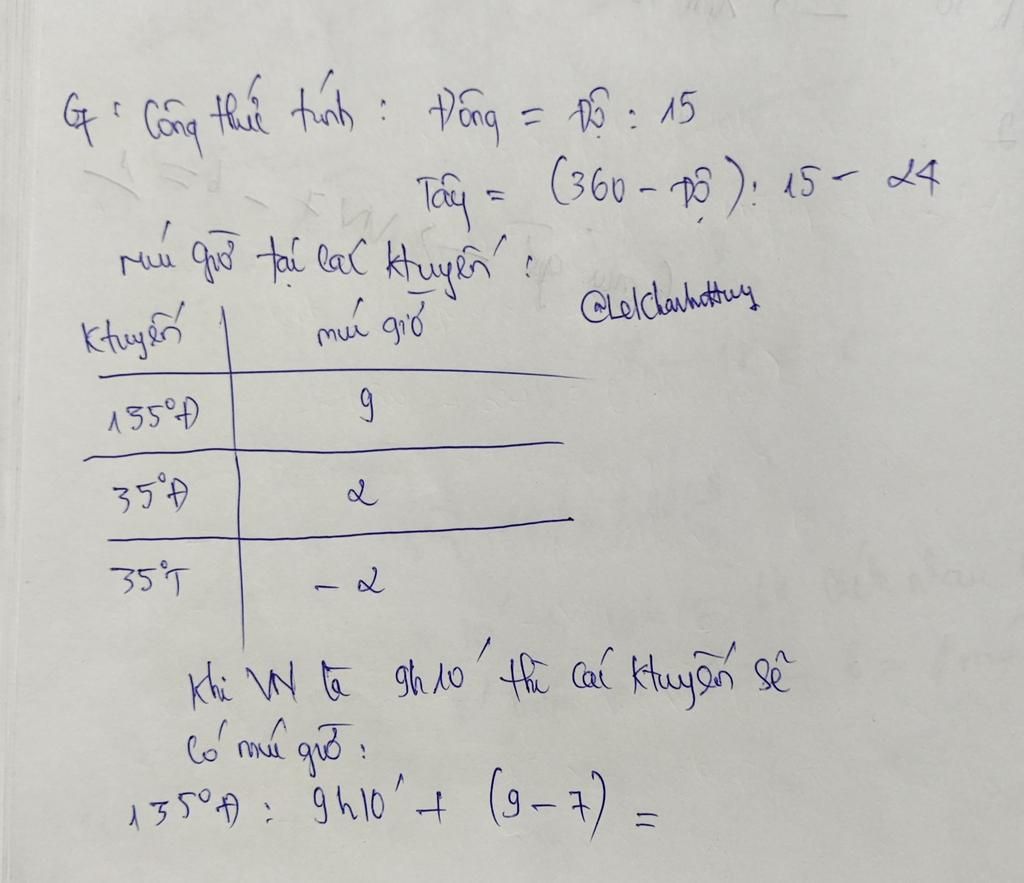 G : Công thức tính : Đông = Độ : 15
Tây = (360 - Độ) : 15 - 24
múi giờ tại các ktuyến :
@LeKhanhHuy
Ktuyến múi giờ
135°Đ 9
35°Đ 2
35°T - 2
Khi VN là 9h10' thì các ktuyến sẽ
có múi giờ :
135°Đ : 9h10' + (9 - 7) =